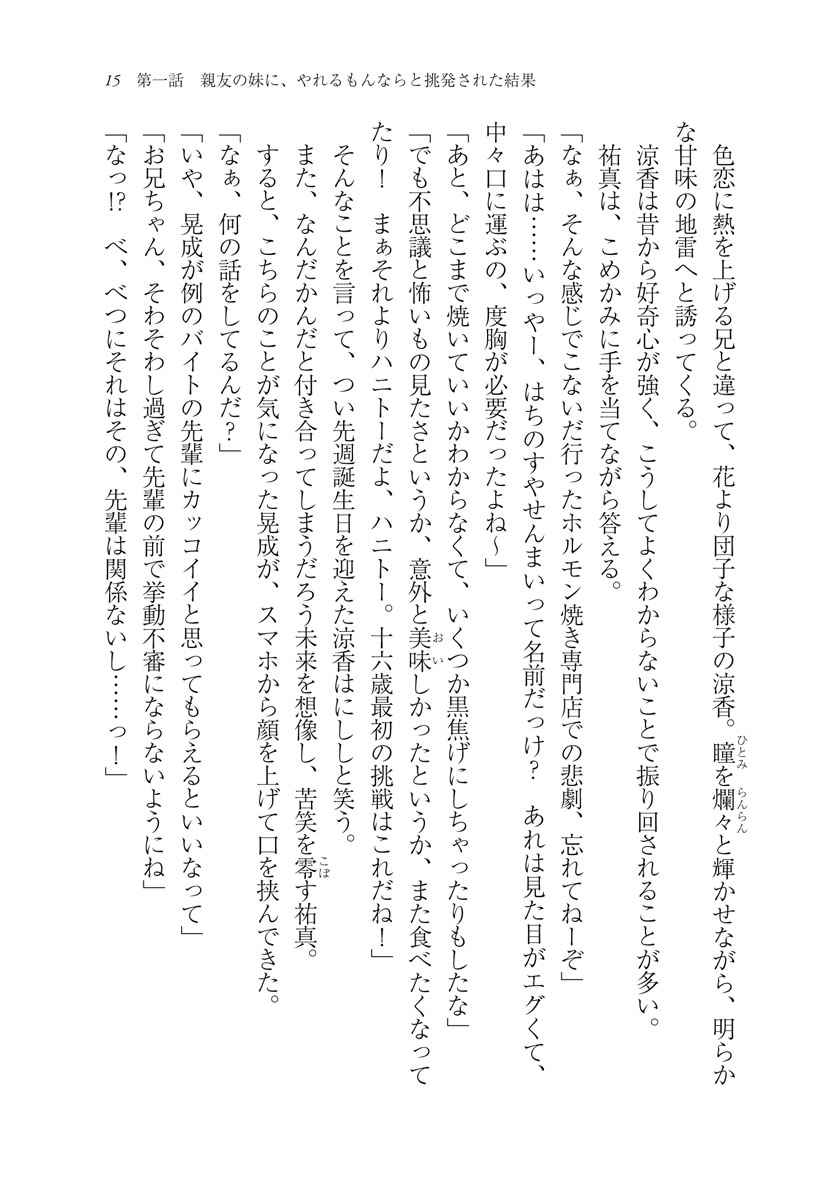 15　第一話　親友の妹に、やれるもんならと挑発された結果
　色恋に熱を上げる兄と違って、花より団子な様子の涼香。瞳を爛々と輝かせながら、明らか
な甘味の地雷へと誘ってくる。
　涼香は昔から好奇心が強く、こうしてよくわからないことで振り回されることが多い。
　祐真は、こめかみに手を当てながら答える。
「なぁ、そんな感じでこないだ行ったホルモン焼き専門店での悲劇、忘れてねーぞ」
「あはは……いっやー、はちのすやせんまいって名前だっけ？　あれは見た目がエグくて、
中々口に運ぶの、度胸が必要だったよね～」
「あと、どこまで焼いていいかわからなくて、いくつか黒焦げにしちゃったりもしたな」
「でも不思議と怖いもの見たさというか、意外と美味しかったというか、また食べたくなって
たり！　まぁそれよりハニトーだよ、ハニトー。十六歳最初の挑戦はこれだね！」
　そんなことを言って、つい先週誕生日を迎えた涼香はにししと笑う。
　また、なんだかんだと付き合ってしまうだろう未来を想像し、苦笑を零す祐真。
　すると、こちらのことが気になった晃成が、スマホから顔を上げて口を挟んできた。
「なぁ、何の話をしてるんだ？」
「いや、晃成が例のバイトの先輩にカッコイイと思ってもらえるといいなって」
「お兄ちゃん、そわそわし過ぎて先輩の前で挙動不審にならないようにね」
「なっ!?　べ、べつにそれはその、先輩は関係ないし……っ！」
ひとみ
らんらん
おい
こぼ